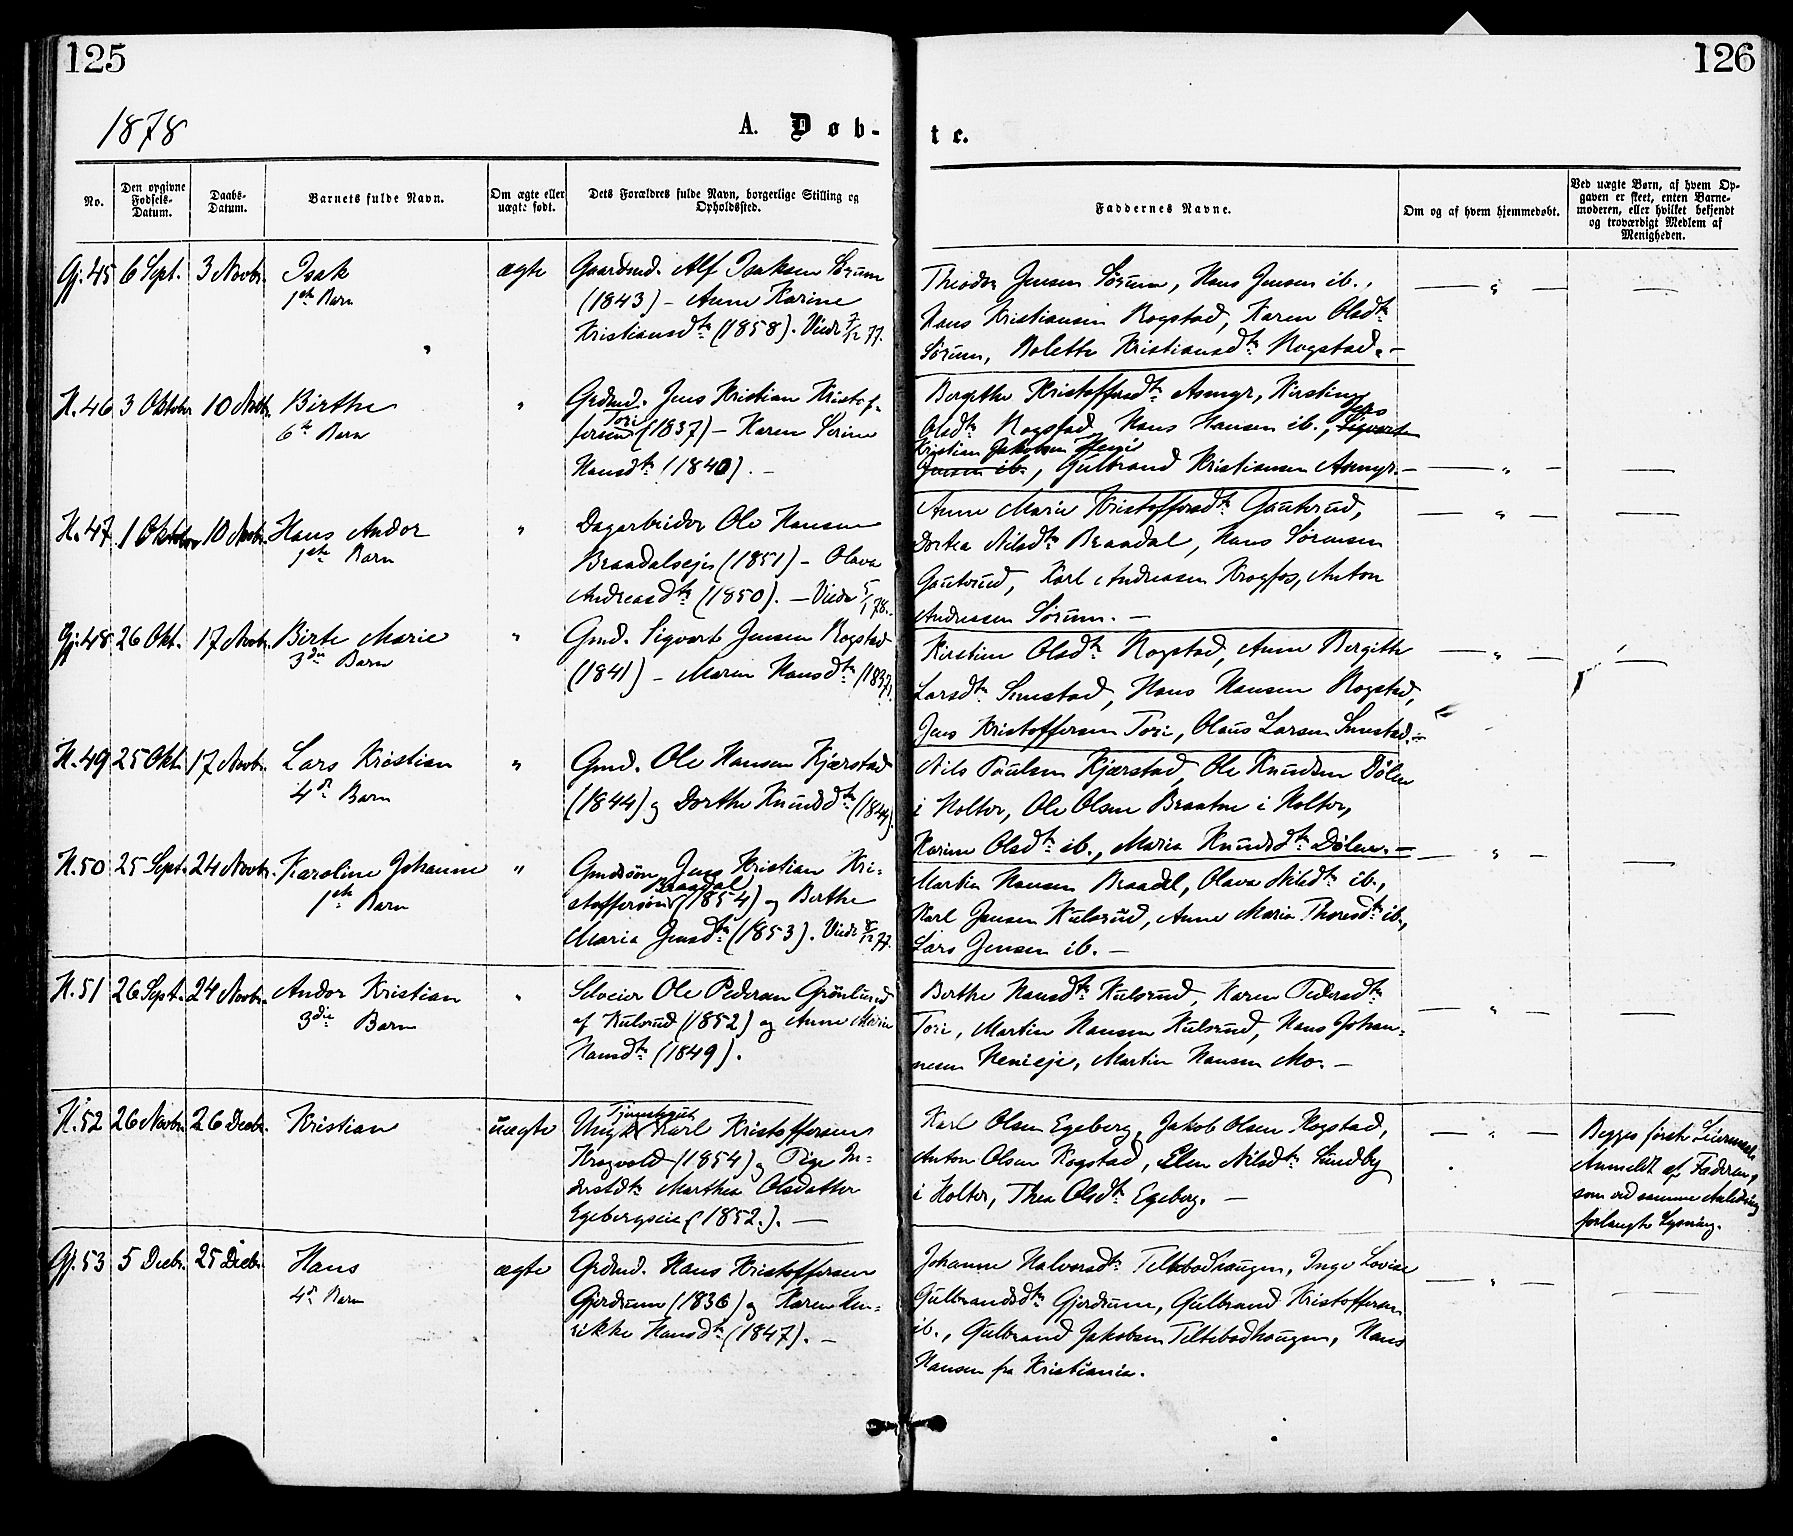 125
126
1878
A. Døb-
te.
No.
Den opgivne
Fødsels-
Datum.
Daabs-
Datum.
Barnets fulde Navn.
Om ægte eller
uægte født.
Dets Forældres fulde Navn, borgerlige Stilling og
Opholdssted.
Faddernes Navne.
Om og af hvem hjemmedøbt.
Ved uægte Børn, af hvem Op-
gaven er skeet, enten Barne-
moderen, eller hvilket bekjendt
og troværdigt Medlem af
Menigheden.
Gj. 45 6 Sept. 3 Novbr. Isak
1ste Barn
ægte
Gaardmd. Alf Isaksen Sørum
(1843) – Anne Karine
Kristiansdtr (1858). Viede 7/12 77.
Theodor Jensen Sørum, Hans Jensen ib.,
Hans Kristiansen Rogstad, Karen Olsdtr
Sørum, Bolette Kristiansdtr Rogstad. –
— " —
H. 46 3 Oktobr 10 Novbr. Birthe
6te Barn
"
Grdmd. Jens Kristian Kristof-
fersen Tori (1837) – Karen Serine
Hansdtr (1840). –
Bergithe Kristoffersdtr Asmyr, Kirstine
Olsdtr Rogstad, Hans Hansen ib., Sigvart Jens
Kristian Jakobsen
Jensen ib., Gulbrand Kristiansen Asmyr. –
— " —
H. 47 1 Oktober 10 Novbr. Hans Andor
1ste Barn
"
Dagarbeider Ole Hansen
Braadalseje (1851) – Olava
Andreasdtr (1850). – Viede 5/1 78.
Anne Marie Kristoffersdtr Gauterud,
Dortea Nilsdtr Braadal, Hans Sørensen
Gauterud, Karl Andreasen Krogfos, Anton
Andreasen Sørum. –
— " —
Gj. 48 26 Okt. 17 Novbr. Birte Marie
3die Barn
"
Gmd. Sigvart Jensen Rogstad
(1841) – Maren Hansdtr (1837).
Kirstine Olsdtr Rogstad, Anne Bergitte
Larsdtr Smestad, Hans Hansen Rogstad,
Jens Kristoffersen Tori, Olaus Larsen Smestad. –
— " —
H. 49 25 Okt. 17 Novbr. Lars Kristian
4de Barn
"
Gmd. Ole Hansen Kjærstad
(1844) og Dorthe Knudsdtr (1844).
Nils Paulsen Kjærstad, Ole Knudsen Dølen
i Holter, Ole Olsen Braaten i Holter,
Karine Olsdtr ib., Maria Knudsdtr Dølen. –
H. 50 25 Sept. 24 Novbr. Karoline Johanne
1ste Barn
"
Gmdsøn Jens Kristian Kri-
stoffersøn Braadal (1854) og Berthe
Maria Jensdtr (1853). Viede 8/12 77.
Martin Hansen Braadal, Olava Nilsdtr ib.,
Karl Jensen Kulsrud, Anne Maria Thoresdtr ib.,
Lars Jensen ib. –
— " —
H. 51 26 Sept. 24 Novbr. Andor Kristian
3die Barn
"
Selveier Ole Pedersen Grönlund
af Kulsrud (1852) og Anne Marie
Hansdtr (1849).
Berthe Hansdtr Kulsrud, Karen Pedersdtr
Tori, Martin Hansen Kulsrud, Hans Johan-
nesen Henieje, Martin Hansen Mo. –
— " —
H. 52 26 Novbr 26 Decbr. Kristian
uægte
Ungk. Tjenestegut Karl Kristoffersen
Krogvold (1854) og Pige In-
derstdtr Marthea Olsdatter
Egebergseie (1852.). –
Karl Olsen Egeberg, Jakob Olsen Rogstad,
Anton Olsen Rogstad, Elen Nilsdtr Lundby
i Holter, Thea Olsdtr Egeberg. –
— " —
Begges første Leiermaal.
Anmeldt af Faderen,
som ved samme Anledning
forlangte Lysning.
Gj. 53 5 Decbr. 25 Decbr. Hans
4de Barn
ægte
Grdmd. Hans Kristoffersen
Gjerdrum (1836) og Karen Hen-
rikke Hansdtr (1847). –
Johanne Halvorsdtr Teltebodhaugen, Inge Lovise
Gulbrandsdtr Gjerdrum, Gulbrand Kristoffersen
ib., Gulbrand Jakobsen Teltebodhaugen, Hans
Hansen fra Kristiania.
— " —